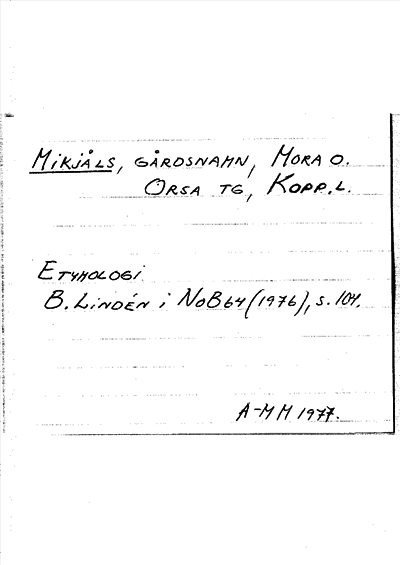 MIKJÅLS, GÅRDSNAMN, MORA O.
ORSA TG, KOPP.L.
ETYMOLOGI
B. LINDÉN i NoB 64 (1976), s. 104.
A-MM 1977.